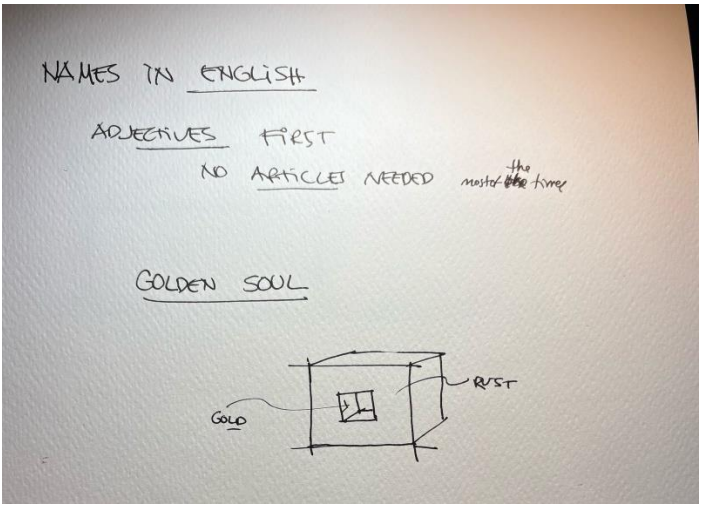 NAMES IN ENGLISH
ADJECTIVES FIRST
NO ARTICLES NEEDED most of the time
GOLDEN SOUL
RUST
GOLD